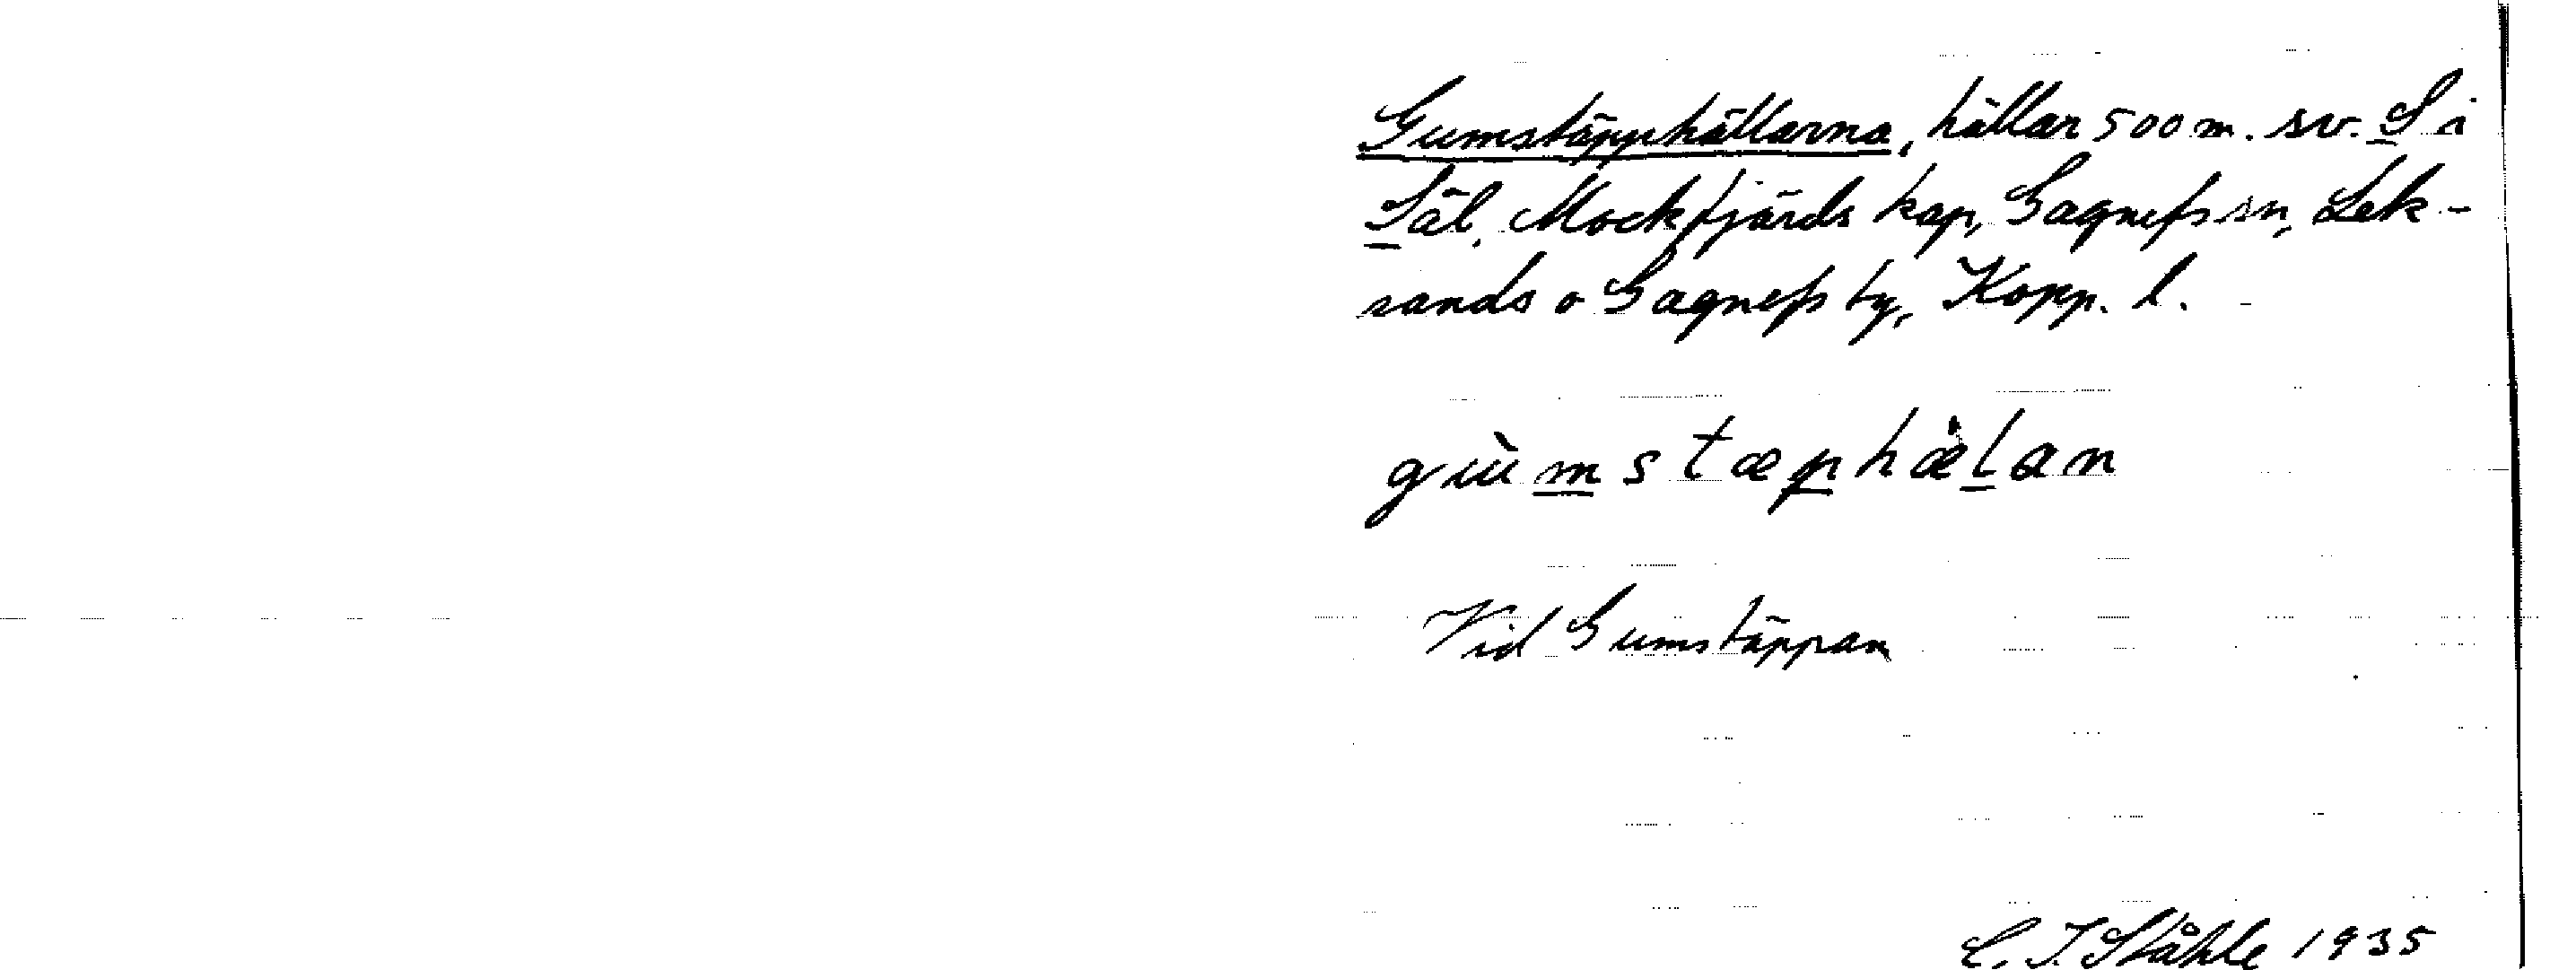 Gumstäpphällarna, hällar 500 m. sv. S i
Säl, Mockfjärds kap, Gagnefs sn, Lek-
sands o Gagnefs tg, Kopp. l.
gùmstæphæ̀lan
Vid Gumstäppan
C. I. Ståhle 1935